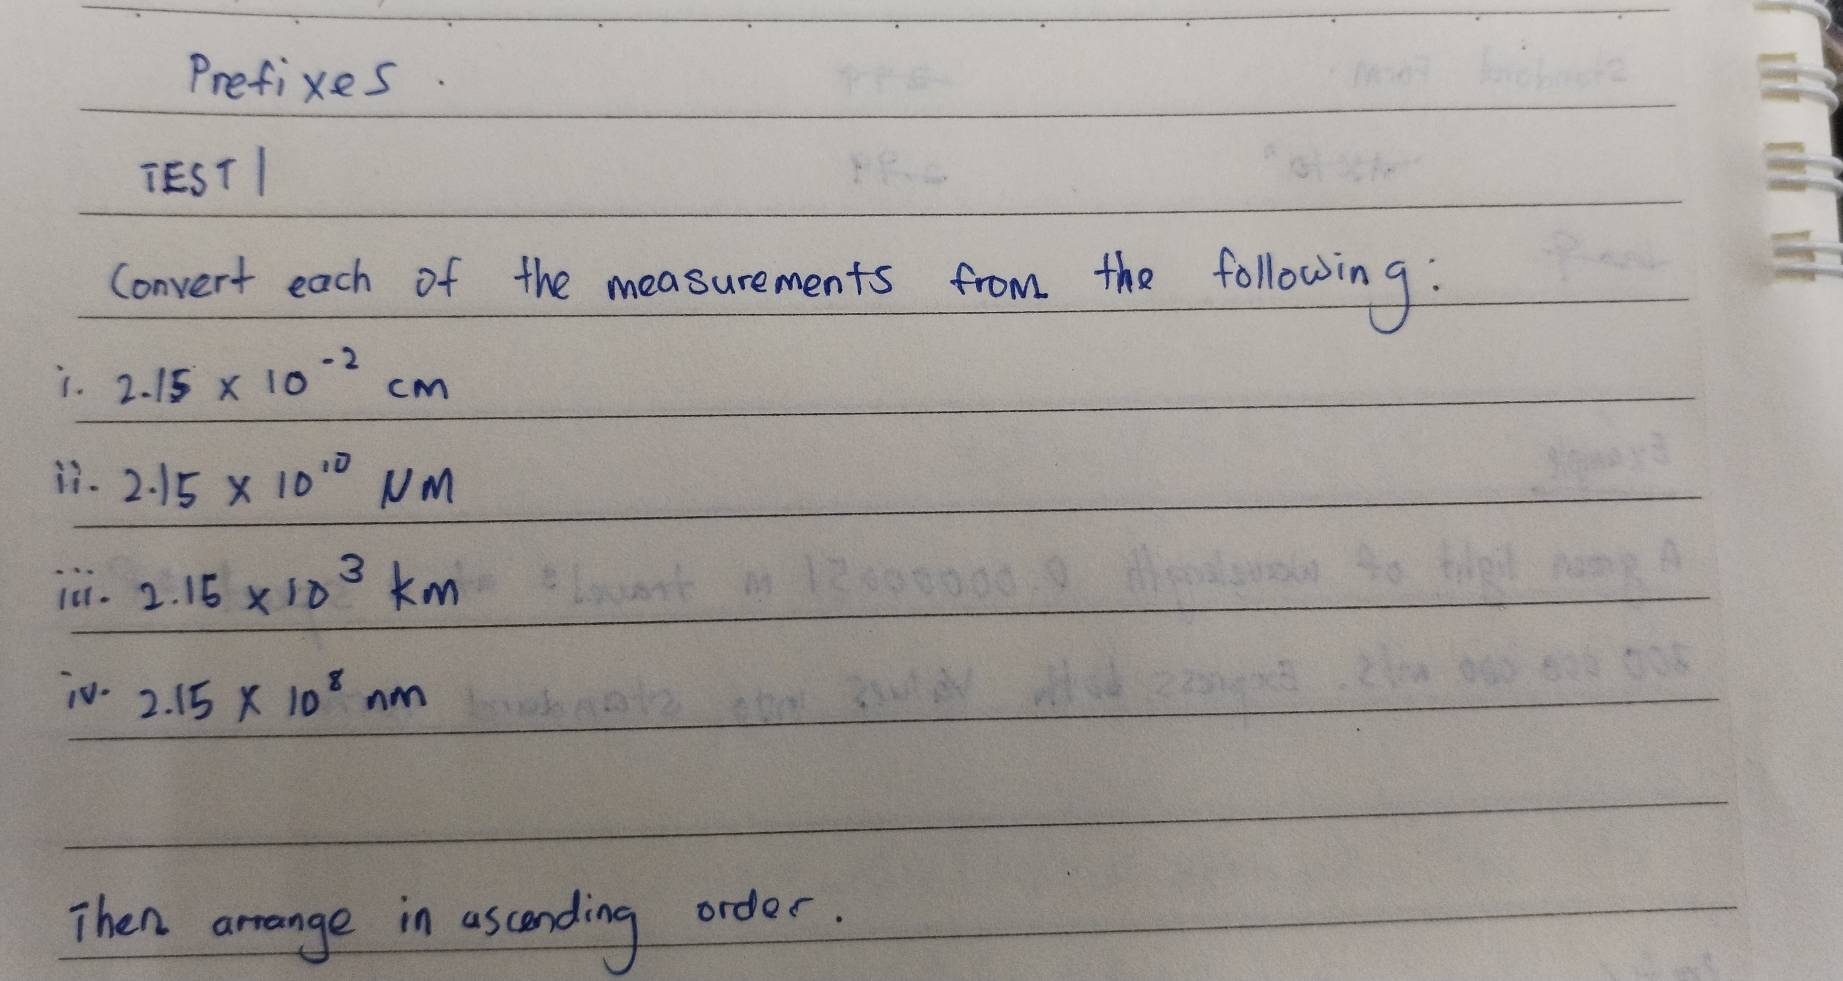 Prefixes.
TEST 1
Convert each of the measurements from the following:
i. 2.15 x 10⁻² cm
ii. 2.15 x 10¹⁰ µm
iii. 2.15 x 10³ km
iv. 2.15 x 10⁸ nm
Then arrange in ascending order.